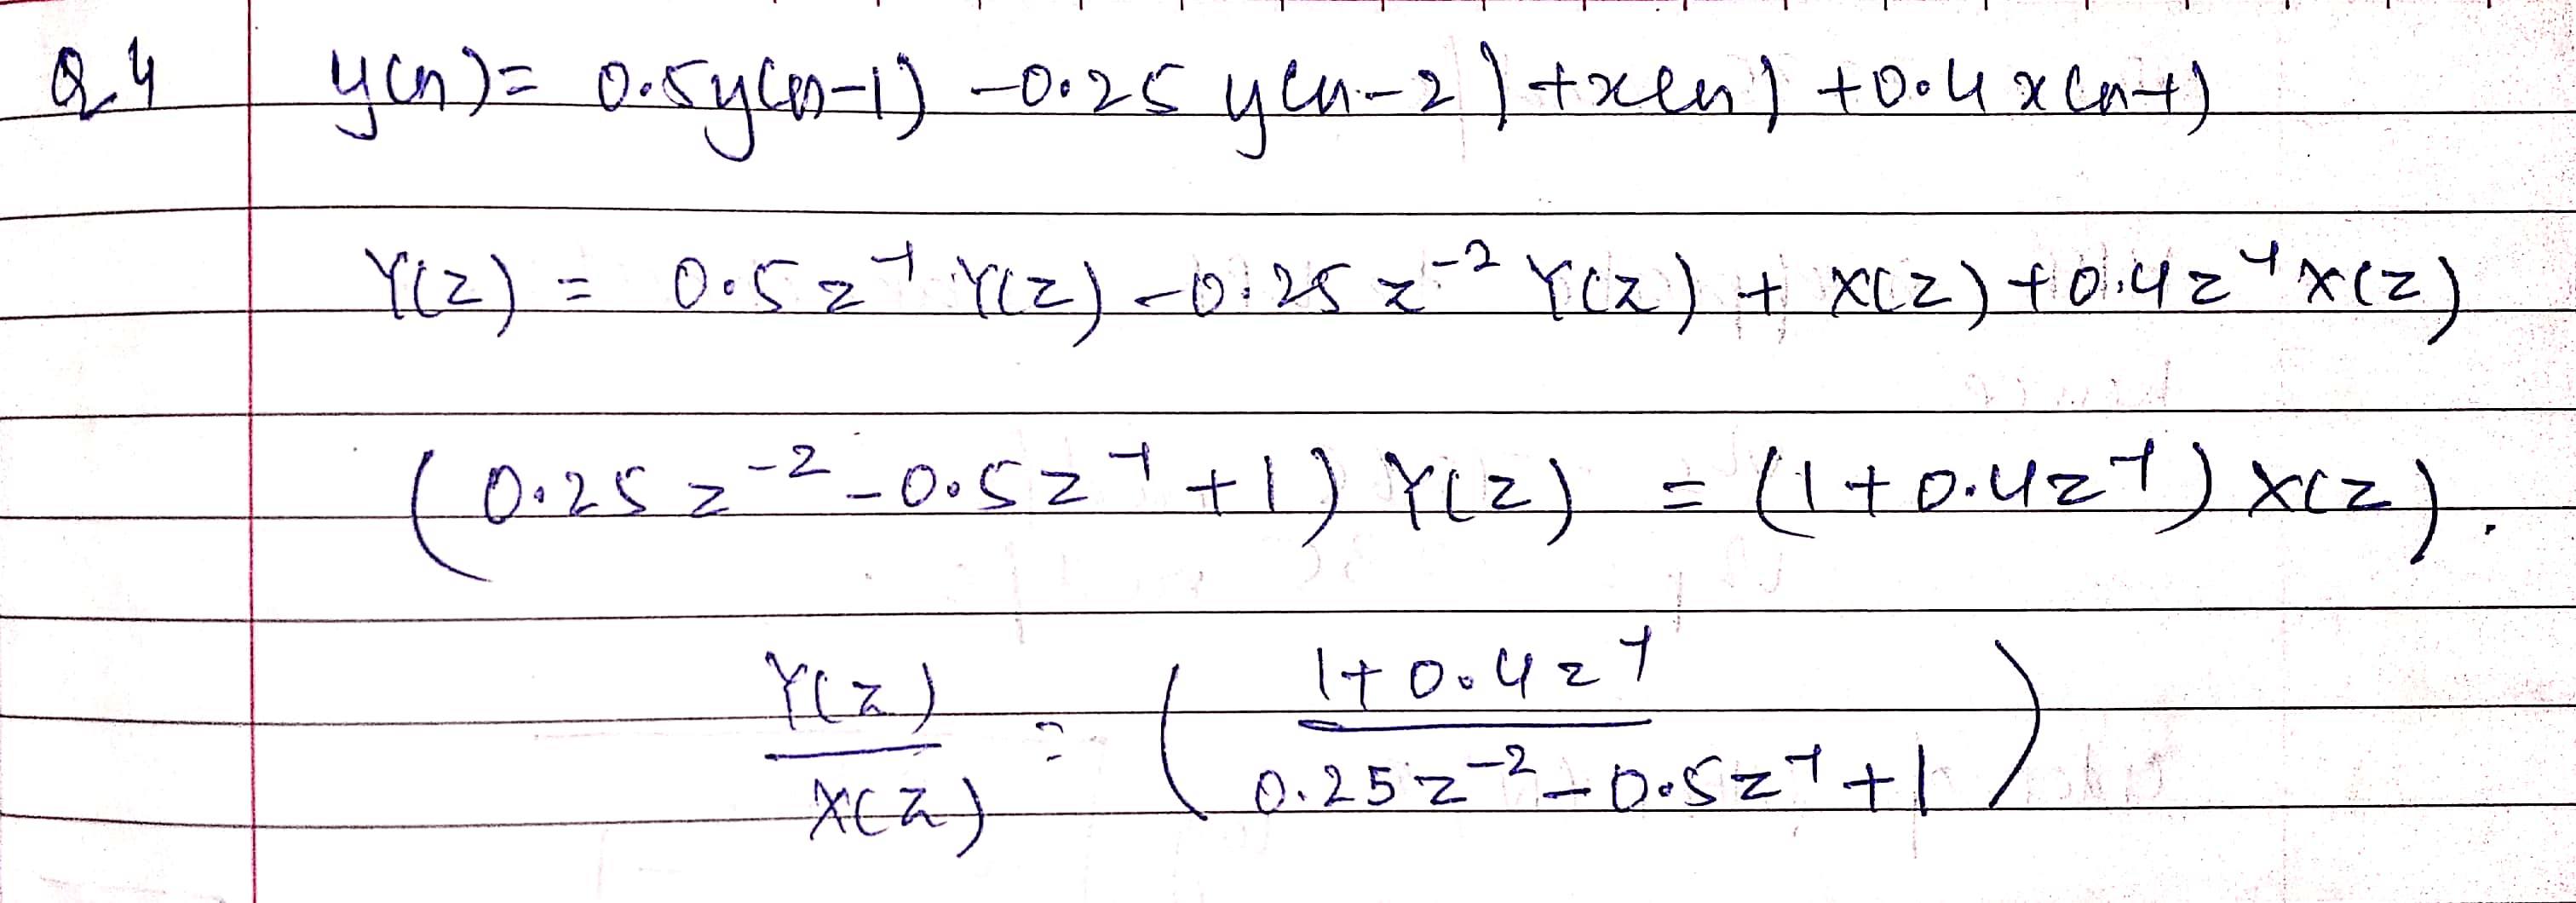 Q4 y(n) = 0.5y(n-1) -0.25 y(n-2) + x(n) +0.4 x(n-1)
Y(z) = 0.5z⁻¹ Y(z) -0.25 z⁻² Y(z) + X(z) + 0.4z⁻¹ X(z)
(0.25 z⁻² - 0.5z⁻¹ + 1) Y(z) = (1 + 0.4z⁻¹) X(z).
Y(z) / X(z) = ( 1 + 0.4z⁻¹ / 0.25z⁻² - 0.5z⁻¹ + 1 )